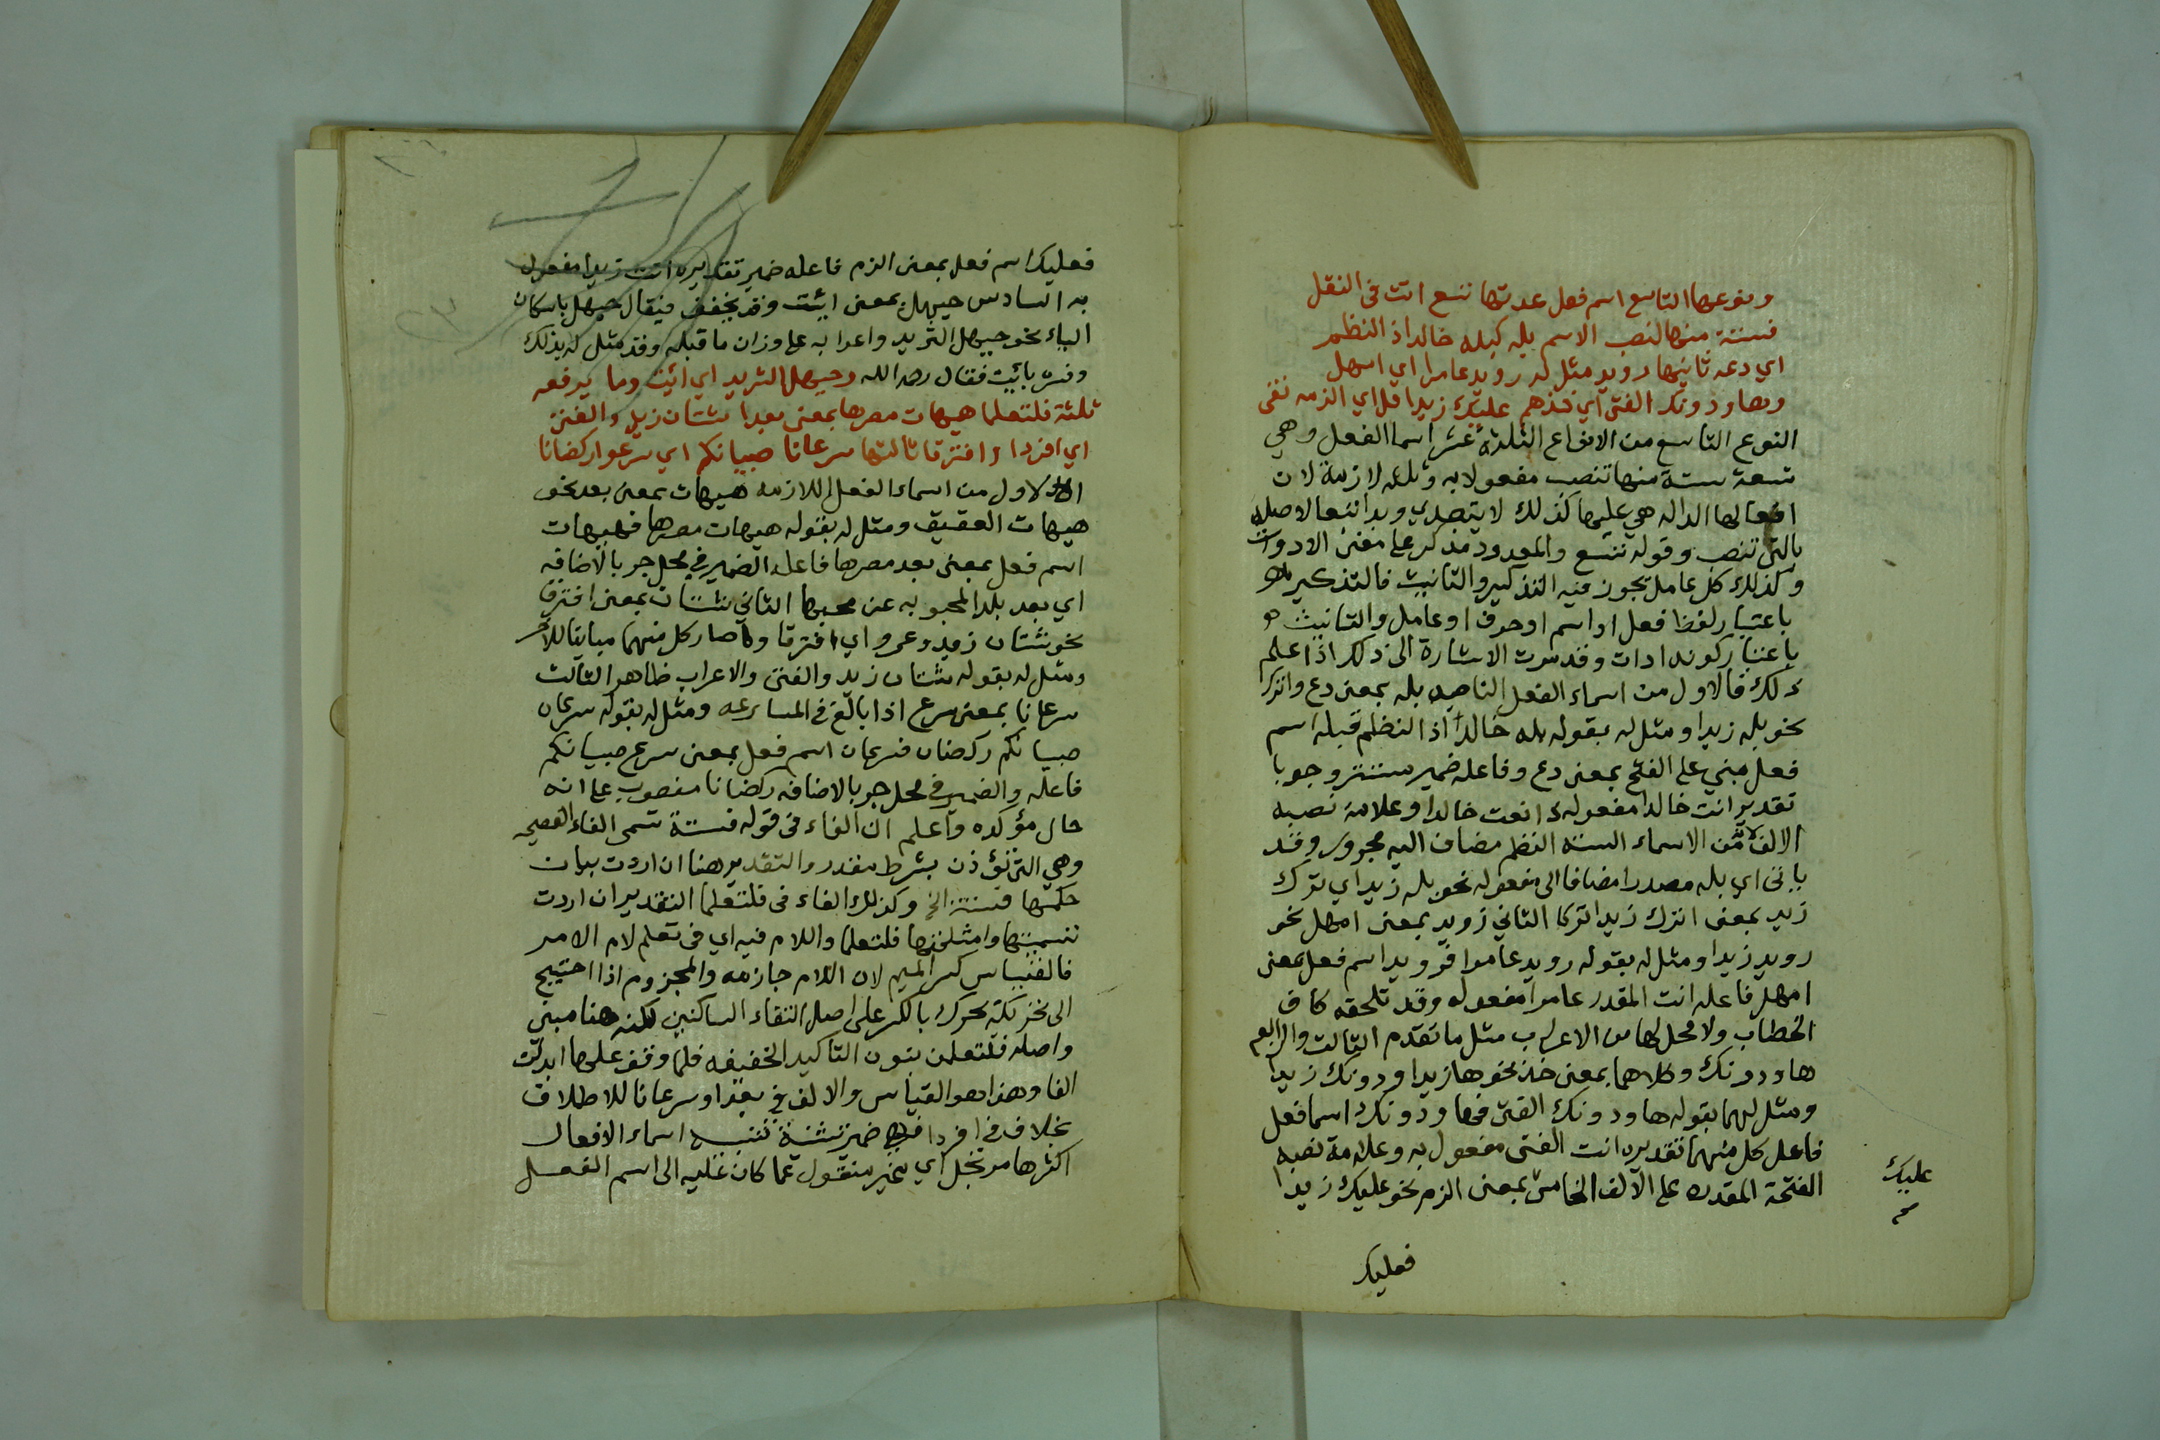 ونوعها التاسع اسم فعل عدتها تسع اتت في النقل
فستة منها لنصب الاسم بله كبله خالدا ذا النظم
اي دعه ثانيها رويد مثل له رويد عامرا اي امهل
وها ودونك الفتى اي خذهم عليك زيدا قل اي الزمه تفى
النوع التاسع من الانواع الثلاثة عشر اسما الفعل وهي
تسعة ستة منها تنصب مفعولا به وثلثه لازمة لان
افعالها الداله هي عليها كذلك لا يتعدي وبدا تبعا لاصله
بالتي تنصب وقوله تسع والمعدود مذكر على معنى الادوات
وكذلك كل عامل يجوز فيه التذكير والتانيث فالتذكير هو
باعتبار لفظ فعل او اسم او حرف او عامل والتانيث هو
باعتبار كونه ادات وقد مرت الاشارة الى ذلك اذا علم
ذلك فالاول من اسماء الفعل الناصبه بله بمعنى دع واترك
نحو بله زيدا ومثل له بقوله بله خالدا ذا النظم فبله اسم
فعل مبني على الفتح بمعنى دع وفاعله ضمير مستتر وجوبا
تقديره انت خالدا مفعوله ذا نعت خالدا وعلامة نصبه
الالف لانه من الاسماء الستة النظم مضاف اليه مجرور وقد
ياتى اي بله مصدرا مضافا الى مفعوله نحو بله زيد اي ترك
زيد بمعنى اترك زيدا تركا الثاني رويد بمعنى امهل نحو
رويد زيدا ومثل له بقوله رويد عامرا فرويد اسم فعل بمعنى
امهل فاعله انت المقدر عامرا مفعوله وقد تلحقه كاف
الخطاب ولا محل لها من الاعراب مثل ما تقدم الثالث والرابع
ها ودونك وكلاهما بمعنى خذ نحو ها زيدا ودونك زيدا
ومثل لهما بقوله ها ودونك الفتى فها ودونك اسما فعل
فاعل كل منهما تقديره انت الفتى مفعول به وعلامة نصبه
الفتحة المقدره على الالف الخامس بمعنى الزم نحو عليك زيدا
عليك
فعليك
فعليك اسم فعل بمعنى الزم فاعله ضمير تقديره انت زيدا مفعول
به السادس حيهل بمعنى ايئت وقد يخفف فيقال حيهل باسكان
الياء نحو حيهل الثريد واعرابه على وزان ما قبله وقد مثل له بذلك
وفسر بائيت فقال رحمه الله وحيهل الثريد اي ائيت وما يرفعه
ثلثة فلتعلما هيهات مصرها بمعنى بعدا شتان زيد والفتى
اي افردا وافترقا ثالثها سرعانا صبيانكم اي سرعوا ركضانا
الاول من اسماء الفعل اللازمه هيهات بمعنى بعد نحو
هيهات العقيق ومثل له بقوله هيهات مصرها فهيهات
اسم فعل بمعنى بعد مصرها فاعله الضمير في محل جر بالاضافه
اي بعد بلد المحبوبه عن محبها الثاني شتان بمعنى افترق
نحو شتان زيد وعمرو اي افترقا وصار كل منهما مباينا للآخر
ومثل له بقوله شتان زيد والفتى والاعراب ظاهر الثالث
سرعانا بمعنى سرع اذا بالغ في المسارعه ومثل له بقوله سرعان
صبيانكم ركضان فسرعان اسم فعل بمعنى سرع صبيانكم
فاعله والضمير في محل جر بالاضافه ركضانا منصوب على انه
حال مؤكده واعلم ان الفاء في قوله فستة تسمى الفاء الفصيحه
وهي التي تؤذن بشرط مقدر والتقدير هنا ان اردت بيان
حكمها فستة الخ وكذلك الفاء في فلتعلما التقدير ان اردت
تسميتها وامثلتها فلتعلما واللام فيه اي في تعلم لام الامر
فالقياس كسر الميم لان اللام جازمه والمجزوم اذا احتيج
الى تحركه تحرك بالكسر على اصل التقاء الساكنين لكنه هنا مبني
واصله فلتعلمن بنون التاكيد الخفيفه فلما وقف عليها ابدلت
الفا وهذا هو القياس والالف في بعدا وسرعانا للاطلاق
بخلاف في افردا فهي ضمير تثنية تنبيه اسماء الافعال
اكثرها مرتجل اي غير منقول عما كان عليه الى اسم الفعل